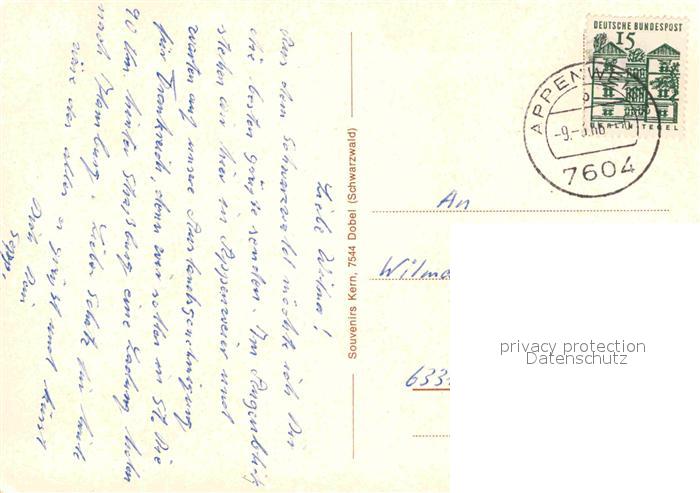 Liebe Wilma!
Aus dem Schwarzwald möchte ich Dir
die besten Grüße senden. Im Augenblick
stehen wir hier in Appenweier und
warten auf unsere Auslandsgenehmigung
für Frankreich, denn wir sollen in St. Die
90 km hinter Straßburg eine Ladung holen
nach Hamburg. Lieber Schatz für heute
wäre das alles es grüßt und küsst
Dich Dein
Souvenirs Kern, 7544 Dobel (Schwarzwald)
DEUTSCHE BUNDESPOST
15
BERLIN TEGEL
APPENWE
7604
An
Wilma
633
privacy protection
Datenschutz